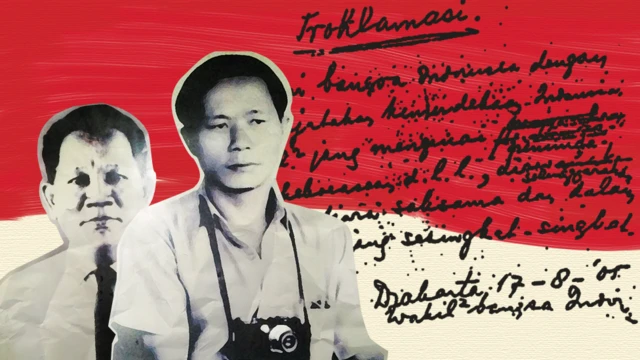 Proklamasi.
i bangsa Indonesia dengan
jatakan kemerdekaan Indonesia.
jang mengenai
kekoeasaan d.l.l., diselenggarakan
tjara saksama dan dalam
jang sesingkat-singkat
Djakarta 17-8-'05
Wakil2 bangsa Indon